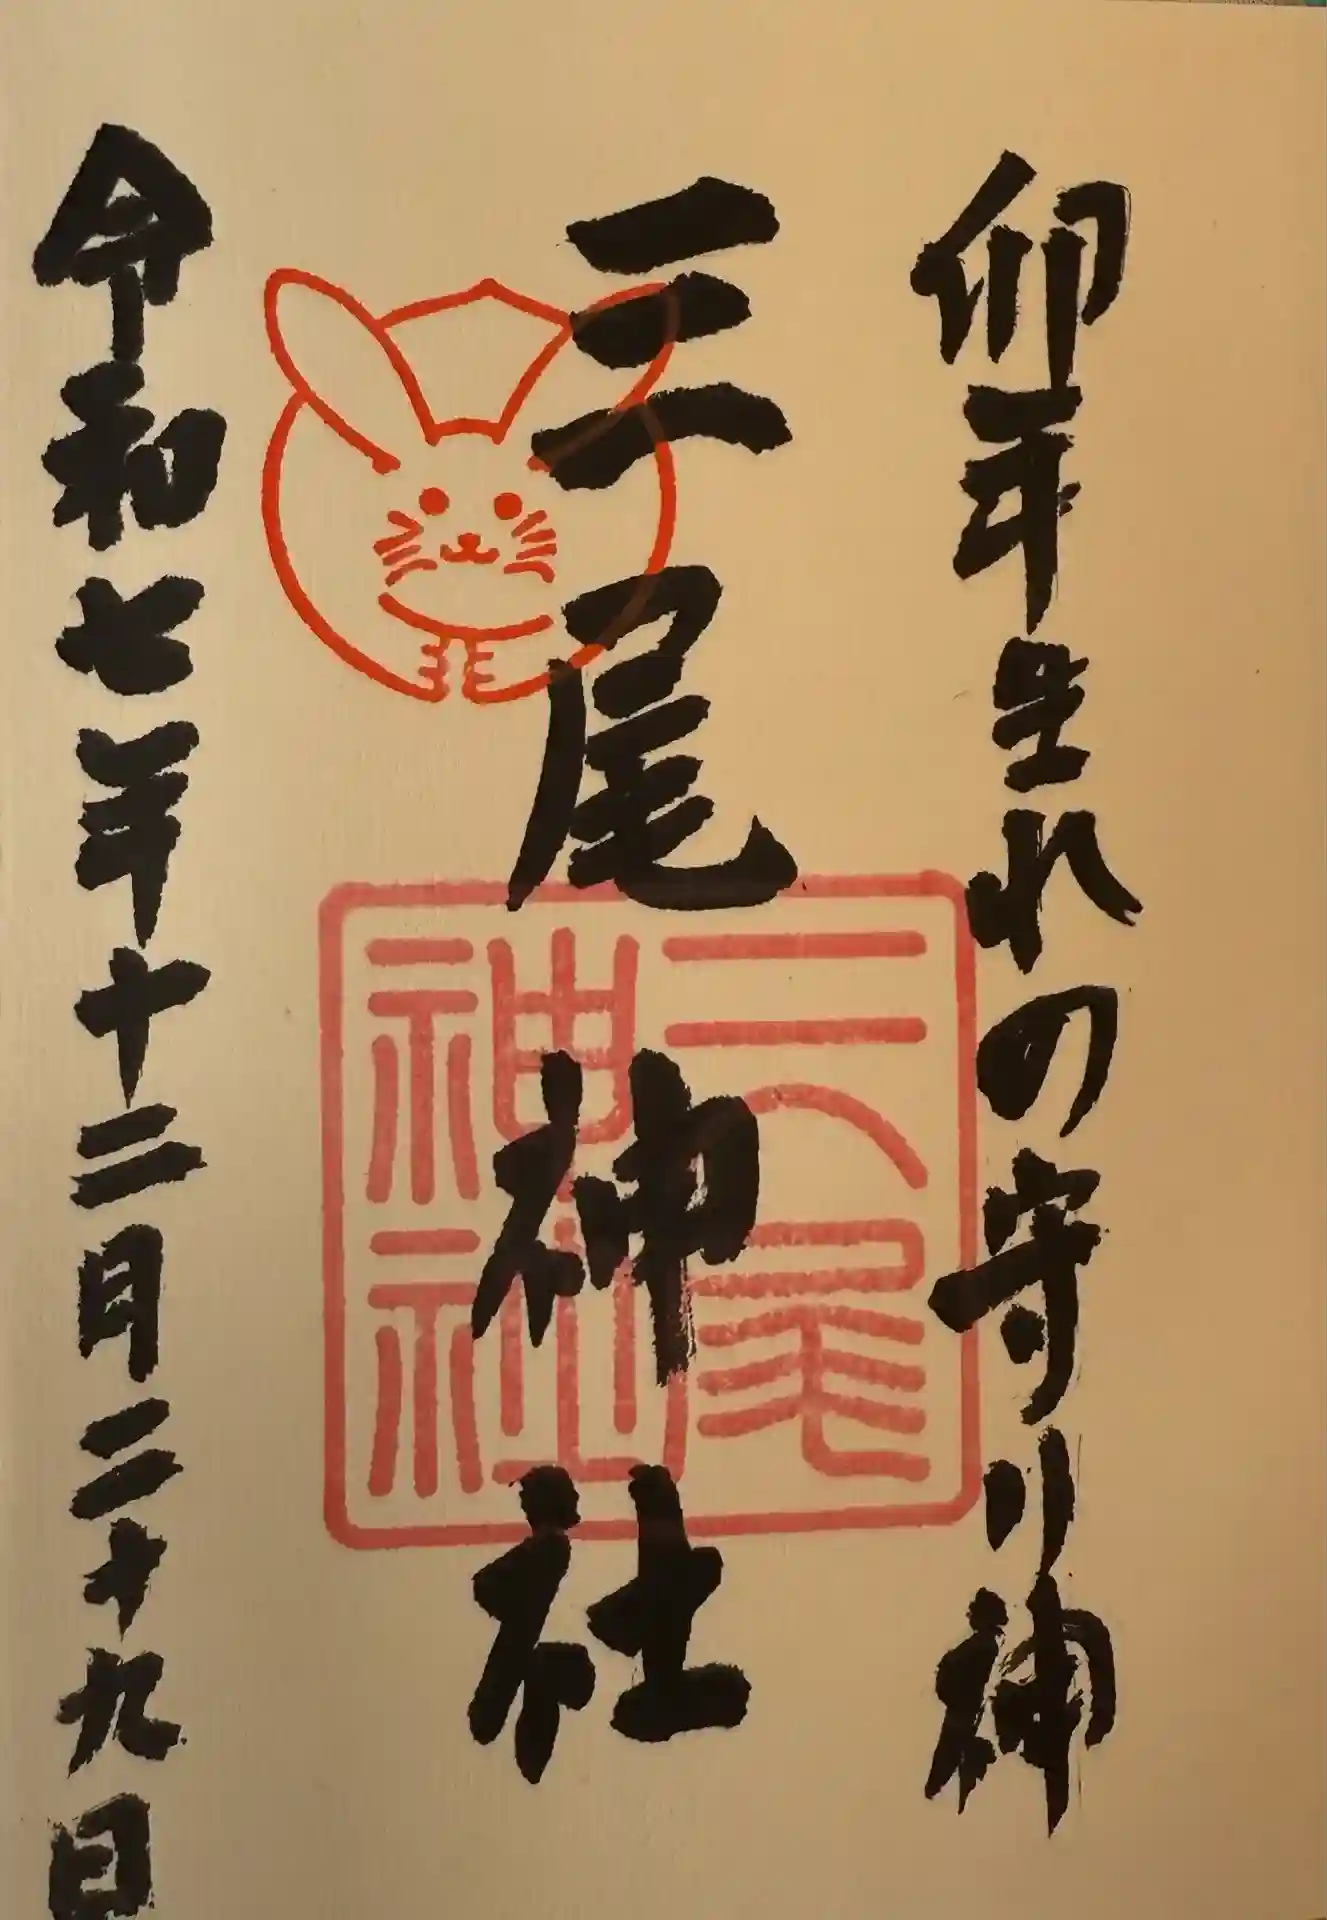 卯年生れの守り神
三尾神社
三尾神社
令和七年十二月二十九日